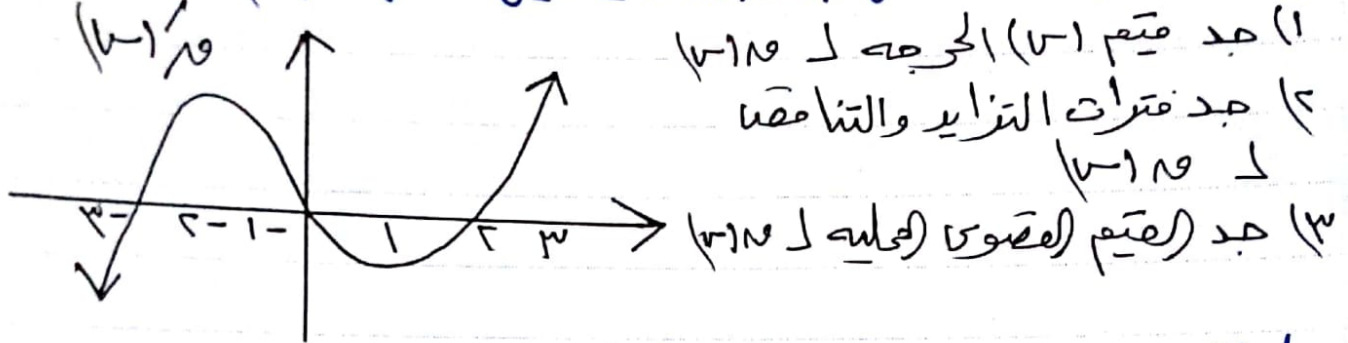 ١) جد قيم (س) الحرجه لـ ق(س)
٢) جد فترات التزايد والتناقص
لـ ق(س)
٣) جد القيم القصوى المحليه لـ ق(س)
قَ(س)
-٣ -٢ -١ ١ ٢ ٣